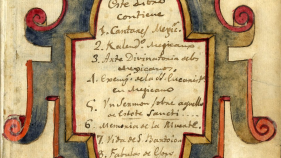 Este Libro
contiene
1. Cantares Mexic.
2. Kalendº. Mexicano
3. Arte Divinatoria delos
mexicanos.
4. Exemp. de la Sª. Eucarist
en Mexicano
5. Un Sermon sobre aquello
de Estote Sancti
6. Memoria de la Muerte
7. Vida de S. Bartolo
8. Fabulas de